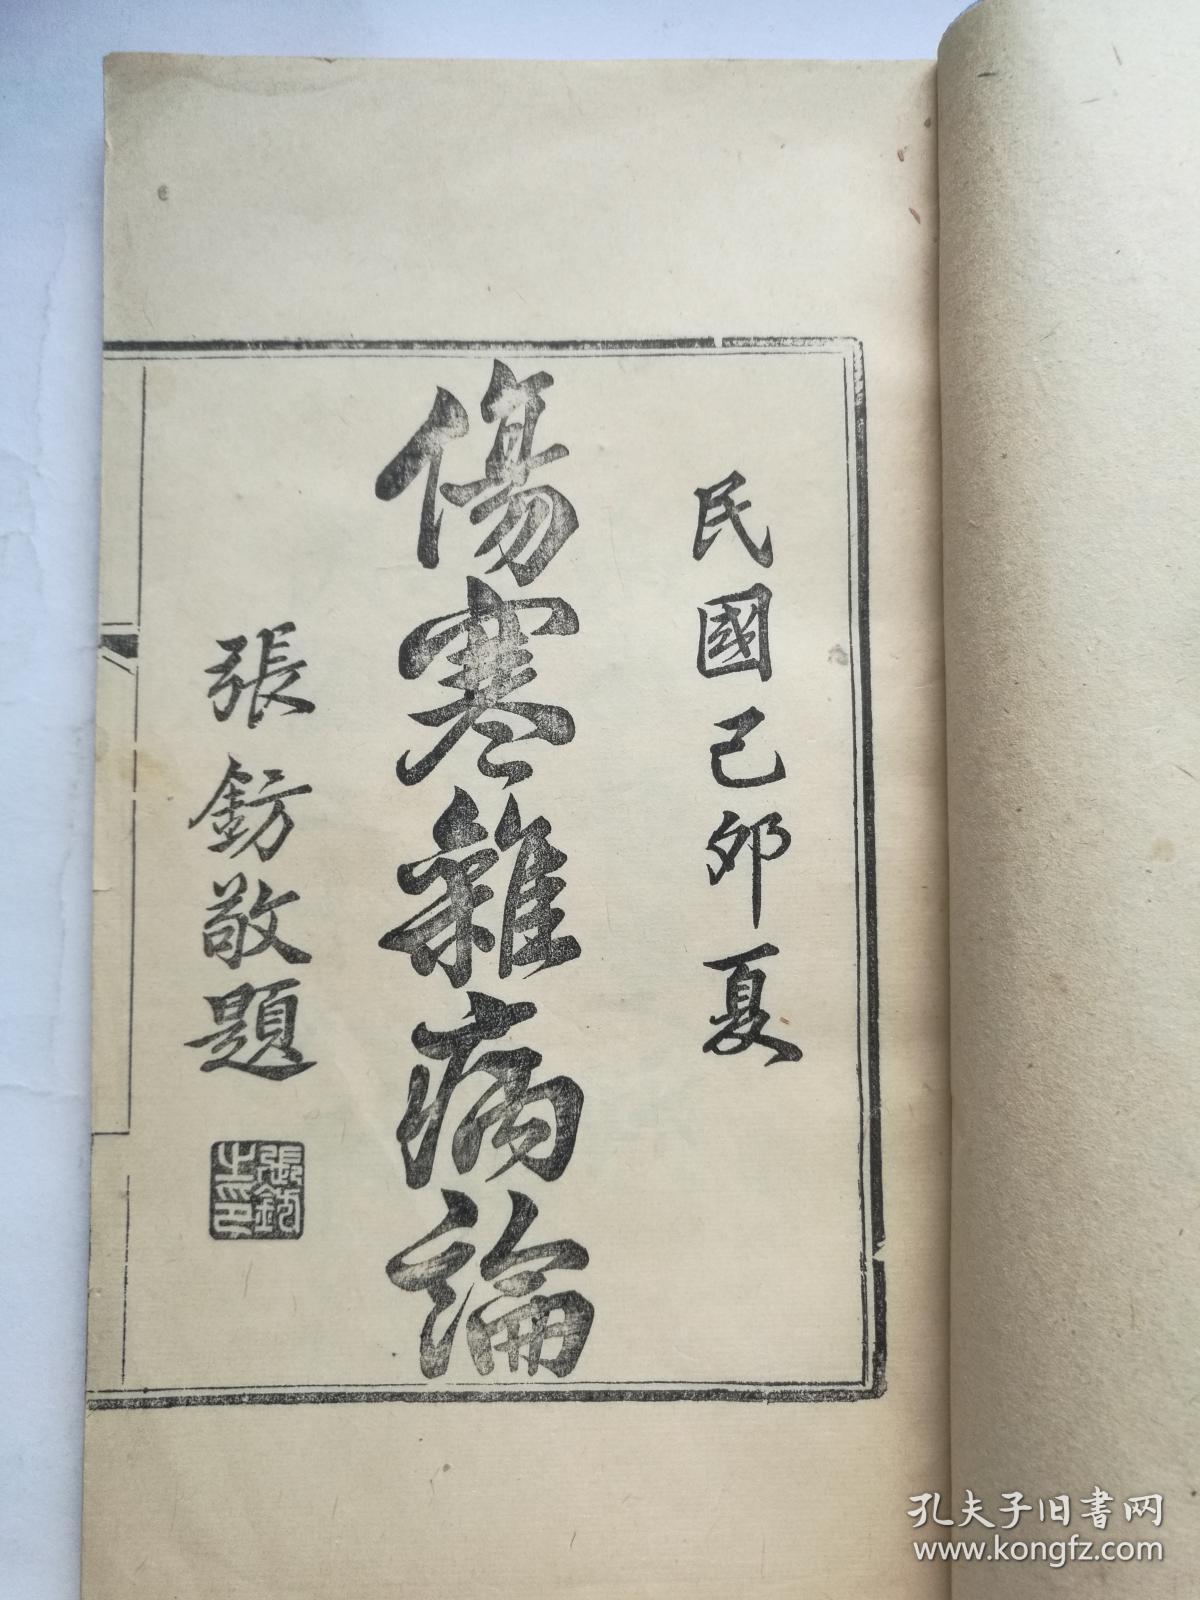 民國己卯夏
傷寒雜病論
張鈁敬題
張鈁之印
孔夫子旧书网
www.kongfz.com